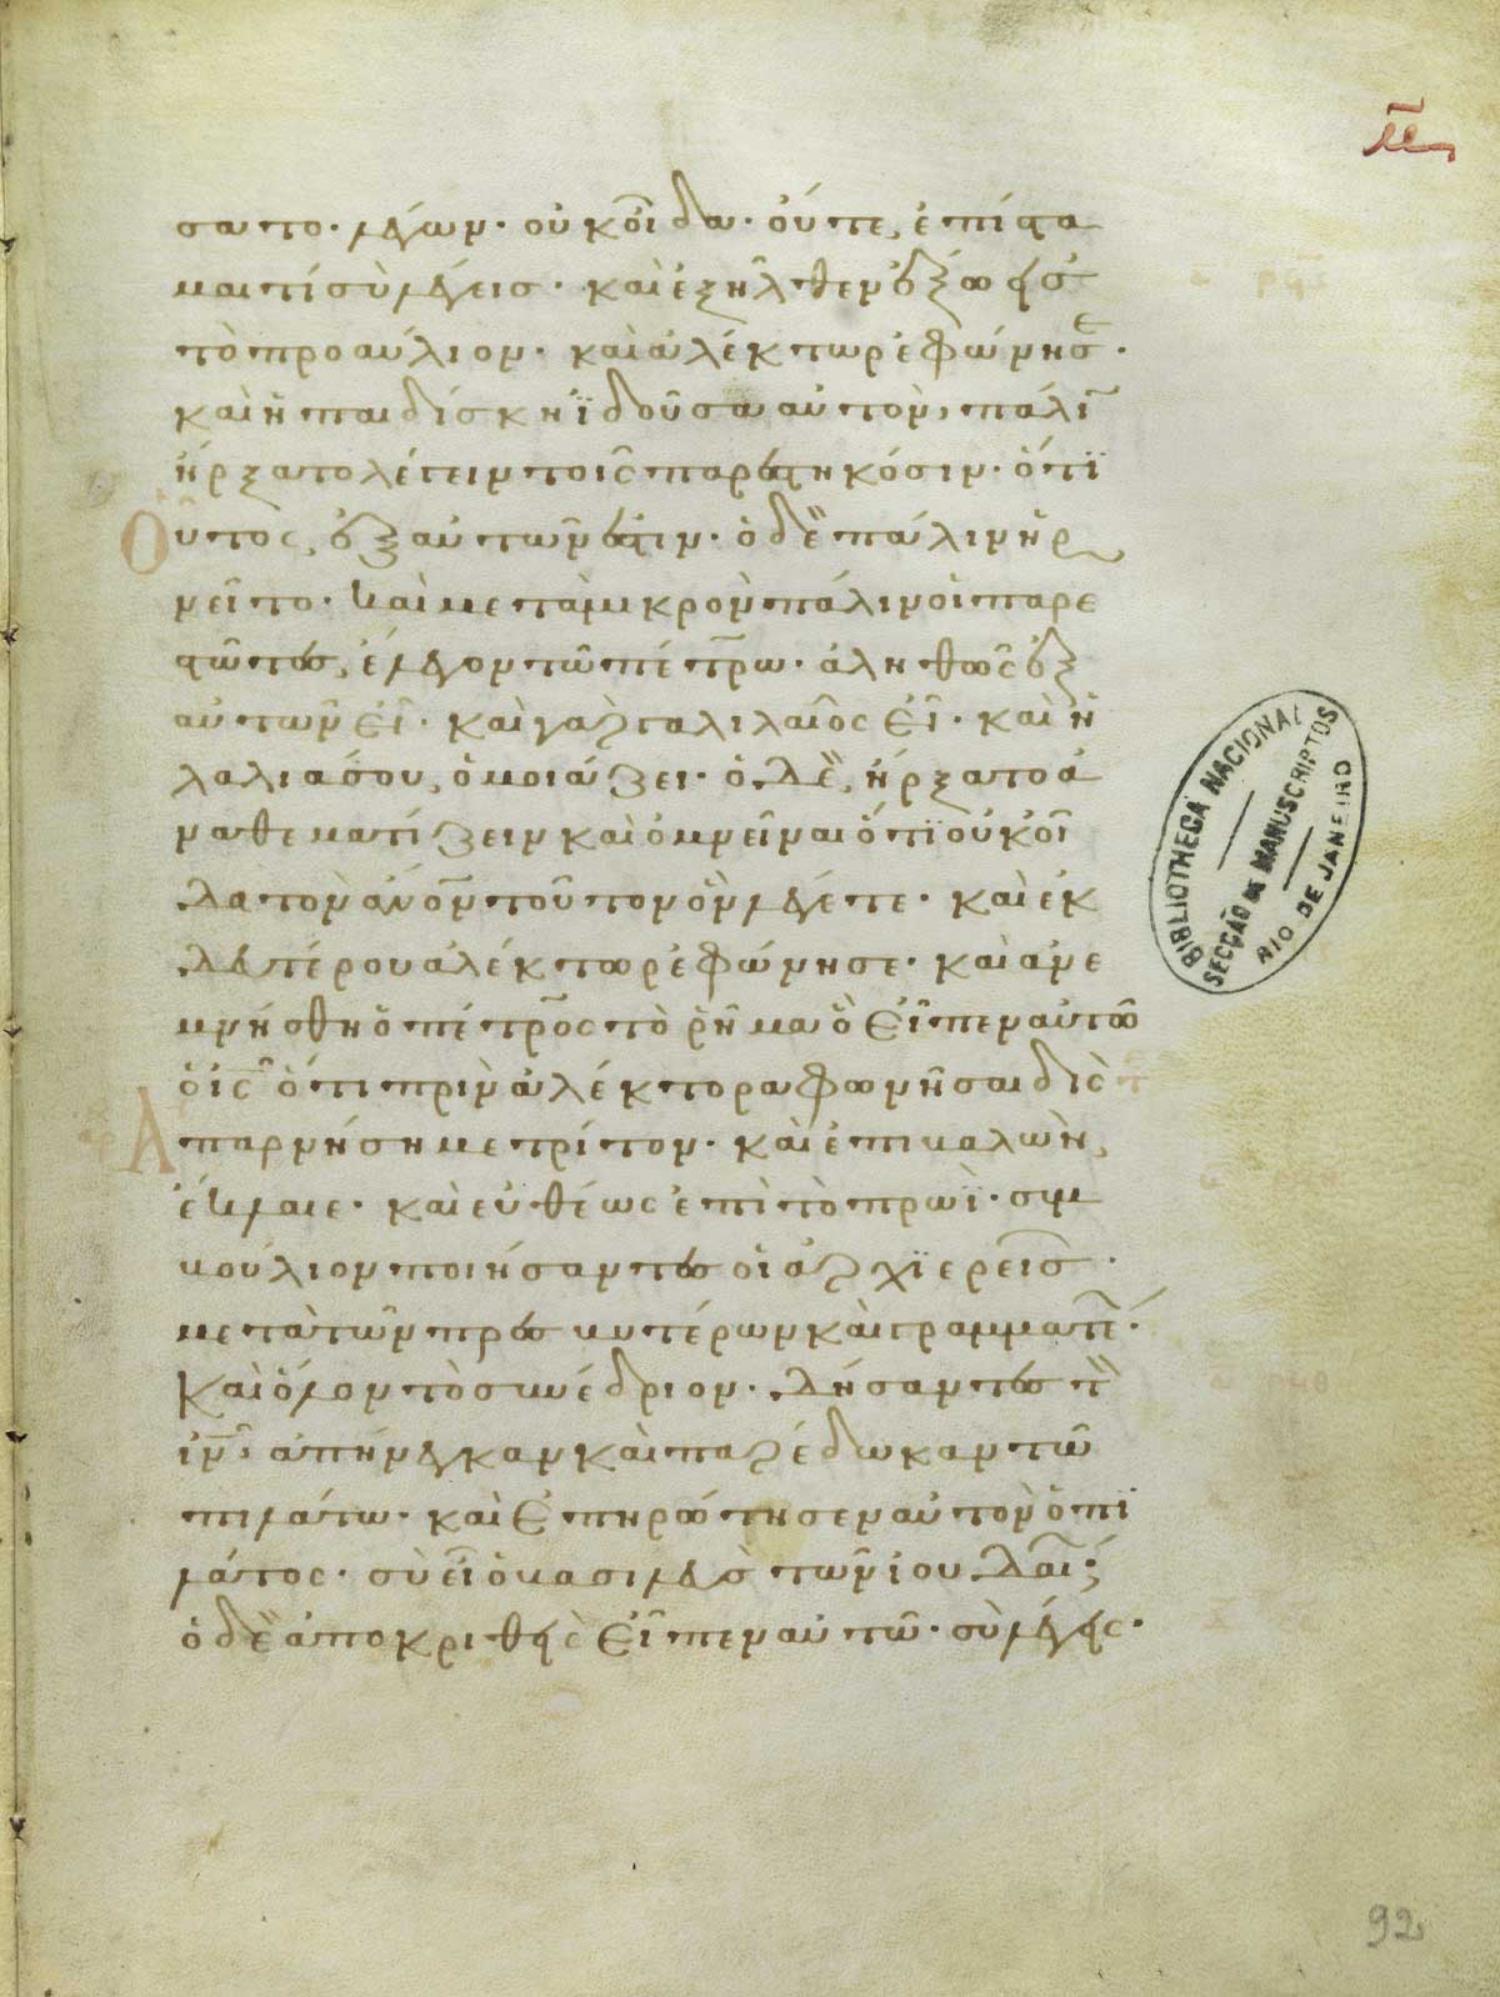 σατο· λέγων· οὐκ οἶδα· οὔτε, ἐπίστα
μαι τί σὺ λέγεις· καὶ ἐξῆλθεν ἔξω εἰς
τὸ προαύλιον· καὶ ἀλέκτωρ ἐφώνησε·
καὶ ἡ παιδίσκη ἰδοῦσα αὐτὸν, πάλιν
ἤρξατο λέγειν τοῖς παρεστηκόσιν· ὅτι
Οὗτος, ἐξ αὐτῶν ἐστιν· ὁ δὲ πάλιν ἠρ
νεῖτο· καὶ μετὰ μικρὸν πάλιν οἱ παρε
στῶτες, ἔλεγον τῶ πέτρω· ἀληθῶς ἐξ
αὐτῶν εἶ· καὶ γὰρ γαλιλαῖος εἶ· καὶ ἡ
λαλιά σου, ὁμοιάζει· ὁ δὲ, ἤρξατο ἀ
ναθεματίζειν καὶ ὀμνεῖναι ὅτι οὐκ οἶ
δα τὸν ἄνον τοῦτον ὃν λέγετε· καὶ ἐκ
δευτέρου ἀλέκτωρ ἐφώνησε· καὶ ἀνε
μνήσθη ὁ πέτρος τὸ ῥῆμα ὃ εἶπεν αὐτῶ
ὁ ις ὅτι πρὶν ἀλέκτορα φωνῆσαι δὶς
Ἀπαρνήση με τρίτον· καὶ ἐπιβαλὼν,
ἔκλαιε· καὶ εὐθέως ἐπὶ τὸ πρωῒ· συμ
βούλιον ποιήσαντες οἱ ἀρχιερεῖς·
μετὰ τῶν πρεσβυτέρων καὶ γραμματέ·
Καὶ ὅλον τὸ συνέδριον· δήσαντες τὸν
ιν, ἀπήνεγκαν καὶ παρέδωκαν τῶ
πιλάτω· καὶ ἐπηρώτησεν αὐτὸν ὁ πι
λάτος· σὺ εἶ ὁ βασιλεὺς τῶν ἰουδαί;
ὁ δὲ ἀποκριθεὶς εἶπεν αὐτῶ· σὺ λέγεις·
BIBLIOTHECA NACIONAL
SECÇÃO DE MANUSCRIPTOS
RIO DE JANEIRO
92